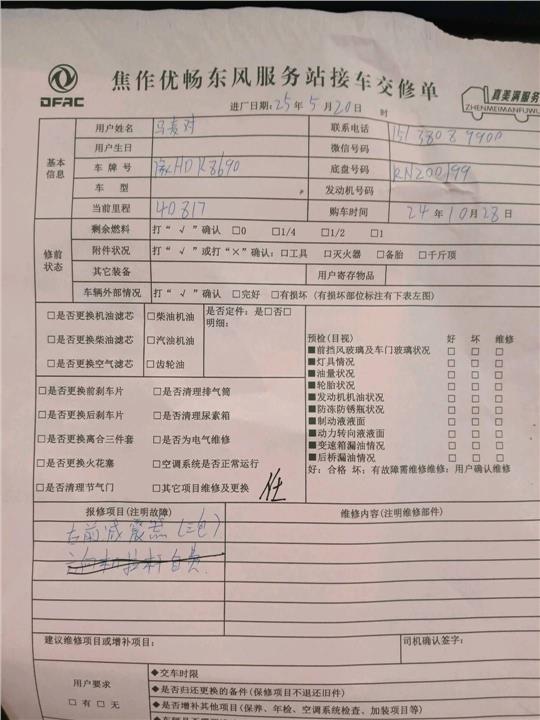 DFAC
焦作优畅东风服务站接车交修单
真美满服务
ZHENMEIMANFUWU
进厂日期:25年 5月20日 时
基本信息
用户姓名
联系电话
用户生日 微信号码
车 牌 号 豫HDK8690 底盘号码 RN200199
车 型 发动机号码
当前里程 40817 购车时间 24年10月28日
修前状态
剩余燃料 打“√”确认 □0 □1/4 □1/2 □1
附件状况 打“√”或打“×”确认:□工具 □灭火器 □备胎 □千斤顶
其它装备 用户寄存物品
车辆外部情况 打“√”确认 □完好 □有损坏(有损坏部位标注有下表左图)
□是否更换机油滤芯 □柴油机油 是否定件:是□否□
明细:
□是否更换柴油滤芯 □汽油机油
□是否更换空气滤芯 □齿轮油
预检(目视) 好 坏 维修
■前挡风玻璃及车门玻璃状况 □ □ □
■灯具情况 □ □ □
■油量状况 □ □ □
■轮胎状况 □ □ □
■发动机机油状况 □ □ □
■防冻防锈瓶状况 □ □ □
■制动液液面 □ □ □
■动力转向液液面 □ □ □
■变速箱漏油情况 □ □ □
■后桥漏油情况 □ □ □
好:合格 坏:有故障需维修维修:用户确认维修
□是否更换前刹车片 □是否清理排气筒
□是否更换后刹车片 □是否清理尿素箱
□是否更换离合三件套 □是否为电气维修
□是否更换火花塞 □空调系统是否正常运行
□是否清理节气门 □其它项目维修及更换
报修项目(注明故障) 维修内容(注明维修部件)
右前减震漏(三包)
方向机拉杆自费
建议维修项目或增补项目: 司机确认签字:
用户要求
□有□无
◆交车时限
◆是否归还更换的备件(保修项目不退还旧件)
◆是否增补其他项目(保养、年检、空调系统检查、加装项目等)